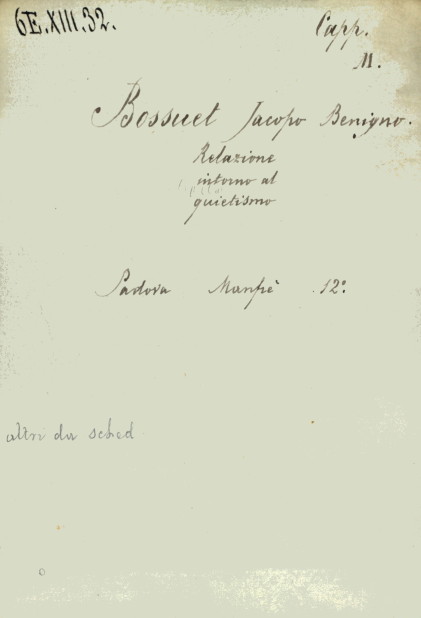 6E.XIII.32.
Capp.
M.
Bossuet Jacopo Benigno.
Relazione
intorno al
quietismo
Padova Manfrè 12º
altri da sched